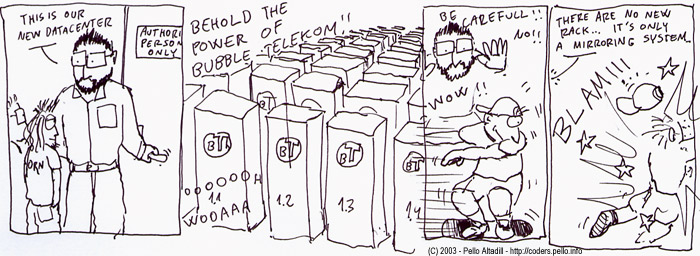 THIS IS OUR
NEW DATACENTER
AUTHORI
PERSON
ONLY
ORN
BEHOLD THE
POWER OF
BUBBLE-TELEKOM!!
BT
BT
BT
BT
OOOOOOH
WOOAAA
1.1
1.2
1.3
1.4
BE CAREFULL!!
NO!!
WOW!!
THERE ARE NO NEW
RACK... IT'S ONLY
A MIRRORING SYSTEM.
BLAM!!!
(C) 2003 - Pello Altadill - http://coders.pello.info